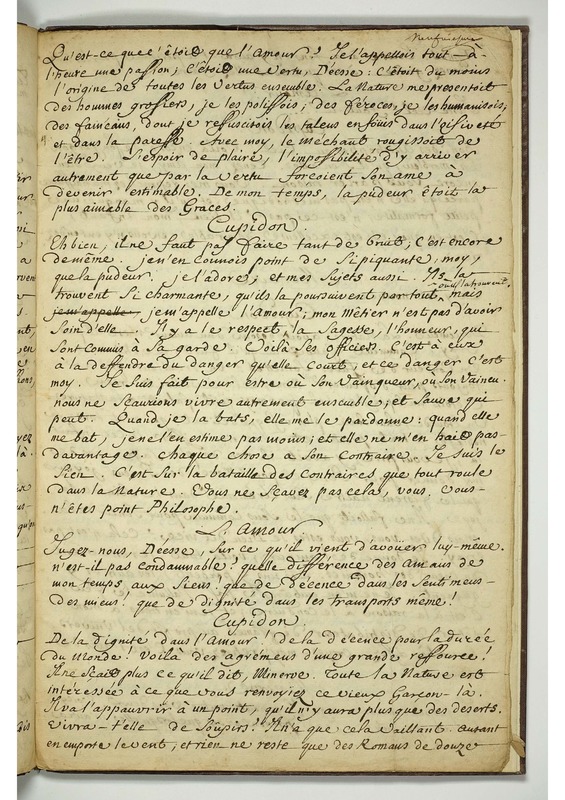 Qu'est-ce que c'étoit que l'Amour? Je l'appellois tout-à-
l'heure une passion; C'étoit une vertu, Déesse: C'étoit du moins
l'origine de toutes les Vertus ensemble. La Nature me presentoit
des hommes grossiers, je les polissois; des féroces, je les humanisois;
des faineans, dont je ressuscitois les talens enfouis dans l'oisiveté
et dans la paresse. Avec moy, le méchant rougissoit de
l'être. L'espoir de plaire, l'impossibilité d'y arriver
autrement que par la Vertu forcoient son ame à
devenir estimable. De mon temps, la pudeur étoit la
plus aimable des Graces.
Cupidon.
Eh bien, il ne faut pas faire tant de bruit; C'est encore
de même. j'en connois point de si piquante, moy,
que la pudeur. je l'adore, et mes sujets aussi. Ils la
trouvent si charmante, qu'ils la poursuivent par tout, mais
je m'appelle je m'appelle l'Amour; mon métier n'est pas d'avoir
soin d'elle. Il y a le respect, la sagesse, l'honneur, qui
sont commis à sa garde. Voilà ses officiers. C'est à eux
à la deffendre du danger qu'elle court; et ce danger c'est
moy. Je suis fait pour estre ou son vainqueur, ou son vaincu.
nous ne scaurions vivre autrement ensemble; et sauve qui
peut. Quand je la bats, elle me le pardonne: quand elle
me bat, je ne l'en estime pas moins; et elle ne m'en hait pas
davantage. chaque chose a son contraire. Je suis le
sien. C'est sur la bataille des contraires que tout roule
dans la Nature. Vous ne scavez pas cela, vous. vous-
n'êtes point Philosophe.
L'Amour
Jugez-nous, Déesse, sur ce qu'il vient d'avoüer luy-même.
n'est-il pas condamnable? quelle différence des Amans de
mon temps aux siens! que de décence dans les sentimens-
des miens! que de dignité dans les transports même!
Cupidon.
De la dignité dans l'Amour! de la décence pour la durée
du Monde! Voilà des agrémens d'une grande ressource!
Il ne scait plus ce qu'il dit, Minerve. Toute la Nature est
intéressée à ce que vous renvoyiez ce vieux Garçon-là.
Il va l'appauvrir à un point, qu'il n'y aura plus que des deserts.
Vivra-t'elle de Soupirs? Il n'a que cela vaillant. autant
en emporte le vent; et rien ne reste que des Romans de douze